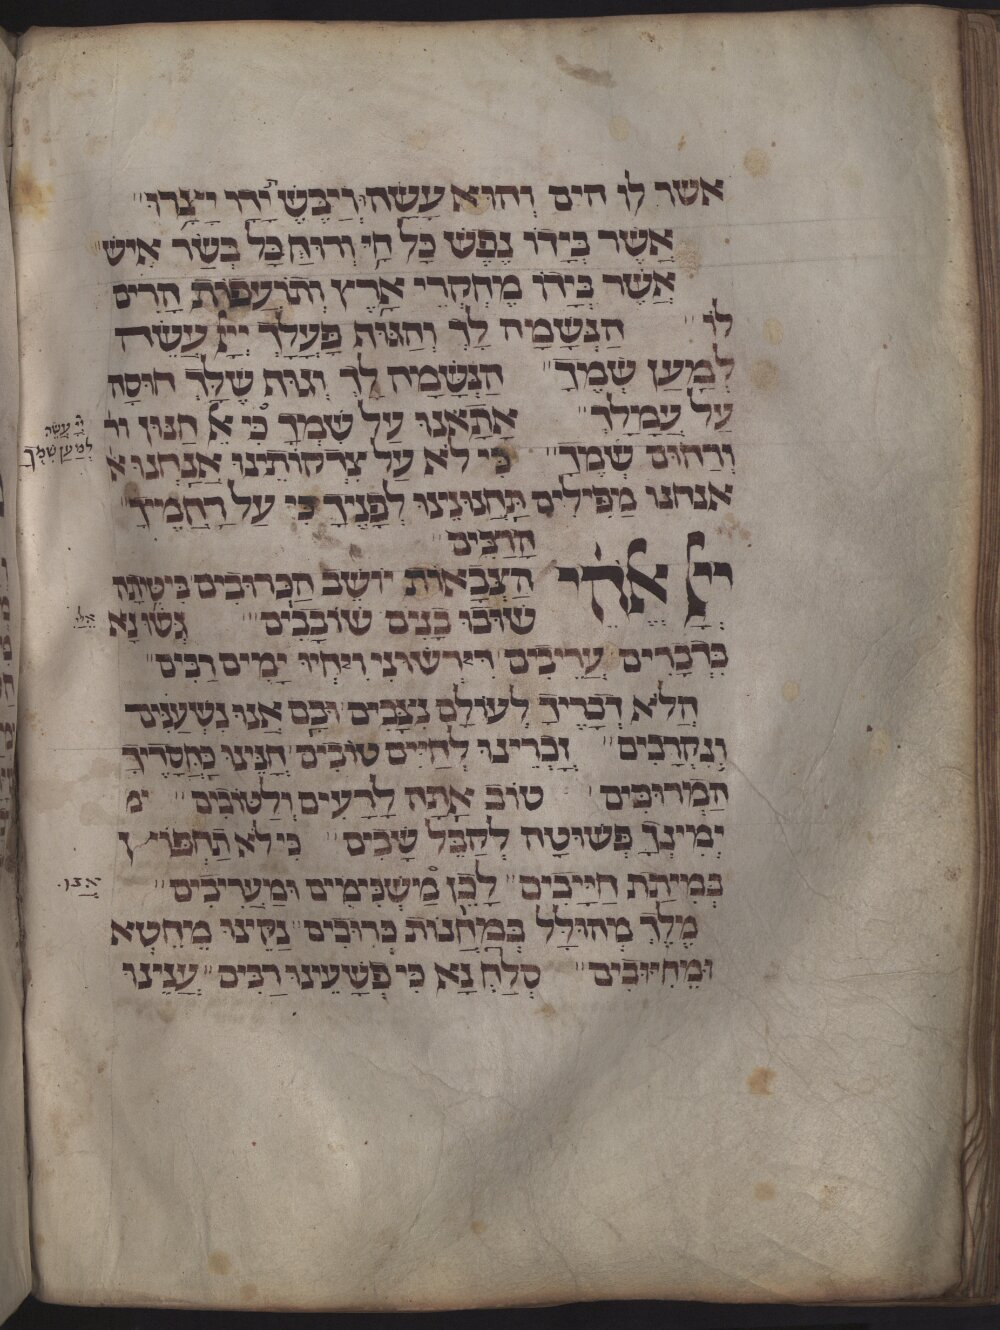 אשר לו הים וְהוּא עָשָׂהוּ וְיַבֶּשֶׁי יָדָו יָיצָרוּ
אֲשֶׁר בְּיָדוֹ נֶפֶשׁ כָּל חָי וְרוּחַ כָּל בְּשַׂר אִישׁ
אֲשֶׁר בְּיָדוֹ מֶחְקְרֵי אָרֶץ וְתוֹעֲפוֹת הָרִים
לוֹ הַנְּשָׁמָה לָךְ וְהַגּוּף פָּעֳלָךְ יְיָ עֲשֵׂה
לְמַעַן שְׁמֶךָ הַנְּשָׁמָה לָךְ וְגוּף שֶׁלָּךְ חוּסָה
עַל עֲמָלָךְ אָתָאנוּ עַל שִׁמְךָ כִּי אֵל חַנּוּן ור
יְיָ עֲשֵׂה
לְמַעַן שְׁמֶךָ
וְרַחוּם שְׁמֶךָ כִּי לֹא עַל צִדְקוֹתֵינוּ אֲנַחְנוּ א
אנחנו מַפִּילִים תַּחֲנוּנֵינוּ לְפָנֶיךָ כִּי עַל רַחֲמֶיךָ
הָרַבִּים
יְיָ אֱלֹהֵי הַצְּבָאוֹת יוֹשֵׁב הַכְּרוּבִים בִּיטִּיתָה
שׁוּבוּ בָּנִים שׁוֹבָבִים גְּשׁוּ נָא
אֵלַי
בִּדְבָרִים עֲרֵיבִים דִּירְשׁוּנִי וִיחְיוּ יָמִים רַבִּים
הֲלֹא דְבָרֶיךָ לְעוֹלָם נִצָּבִים וּבָם אָנוּ נִשְׁעָנִים
וְנִקְרָבִים זָכְרֵינוּ לְחַיִּים טוֹבִים חָנֵּינוּ כַּחֲסָדֶיךָ
הַמְרוּבִּים טוֹב אַתָּה לָרָעִים וְלַטּוֹבִים ימ
יְמִינְךָ פְּשׁוּטָה לְקַבֵּל שָׁבִים כִּי לֹא תַחְפּוֹץ
בְּמִיתַת חַיָּיבִים לָכֵן מַשְׁכִּימִים וּמַעֲרִיבִים
מֶלֶךְ מְהוּלָּל בְּמַחֲנוֹת כְּרוּבִים נַקֵּינוּ מֵחֵטְא
וּמֵחִיּוּבִים סְלַח נָא כִּי פְשָׁעֵינוּ רַבִּים עֲנֵינוּ